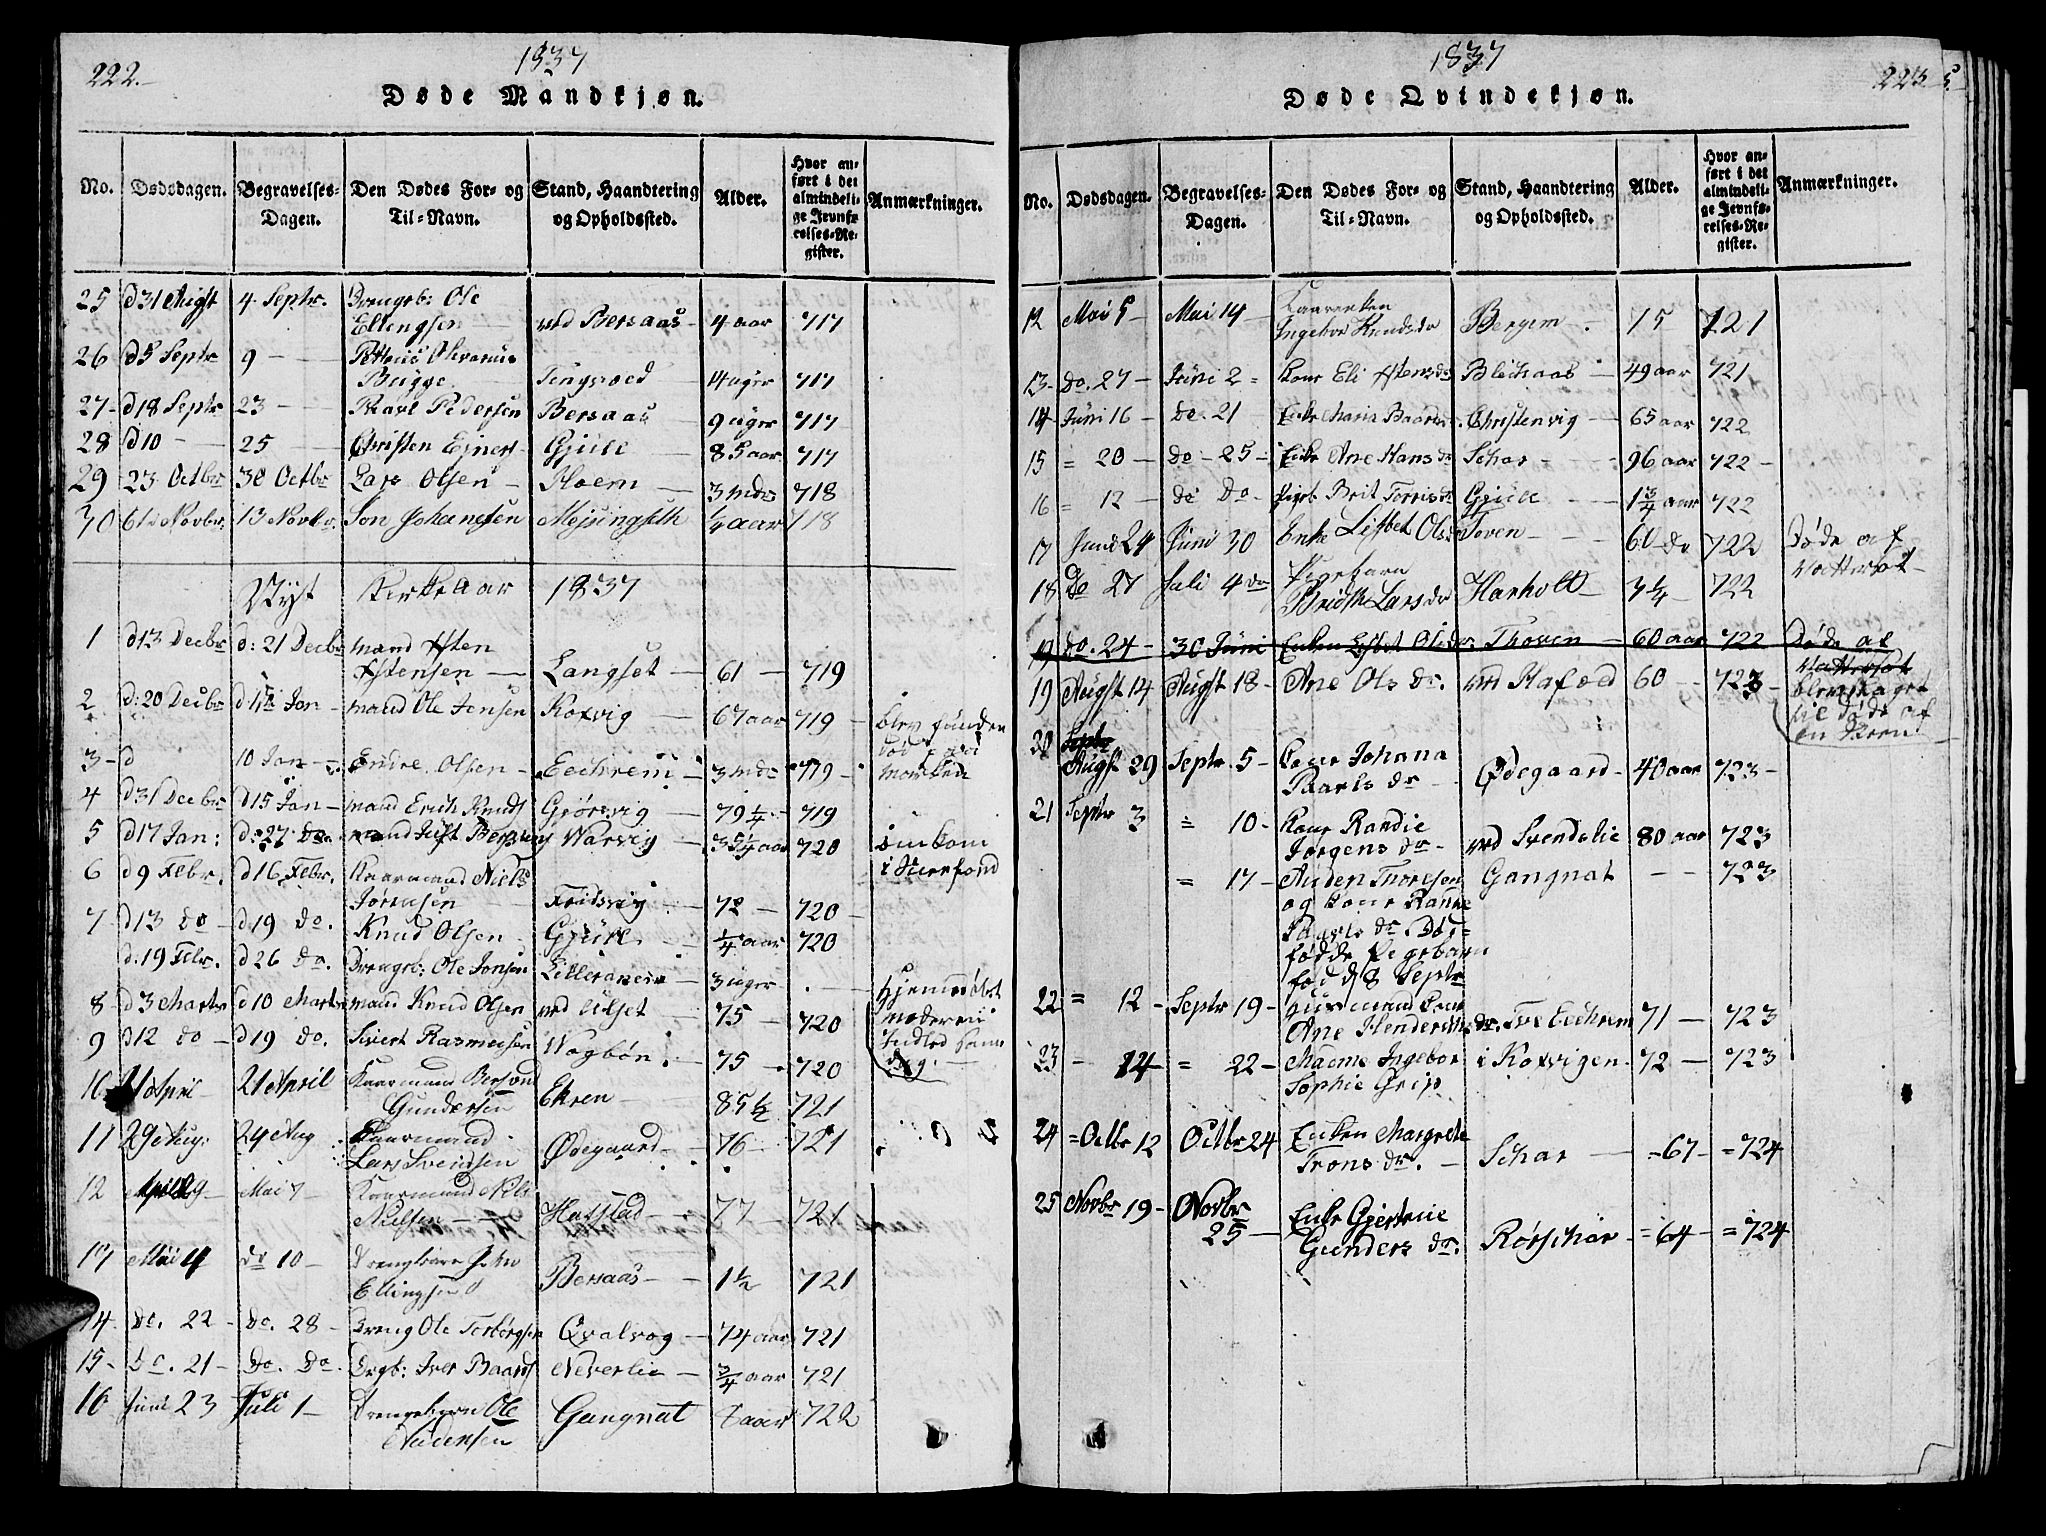 222.
1837
Døde Mandkjøn.
No. Dødsdagen. Begravelses-Dagen. Den Dødes For- og Til-Navn. Stand, Haandtering og Opholdssted. Alder. Hvor anført i det almindelige Jevnførelses-Register. Anmærkninger.
25 d 31 Augst 4 Septr. Drengb: Ole
Ellingsen ved Bersaas 4 aar 717
26 d 5 Septr 9
Bugge Tingvoed 14 uger 717
27 d 18 Septr 23 Karl Pedersen Bersaas 9 uger 717
28 d 10 25 Christen Ejnert Gjule 85 aar 717
29 23 Octbr 30 Octbr Lars Olsen Hoem 3 mdr 718
30 6te Novbr. 13 Novbr. Jon Johansen 1/4 aar 718
Nyt Kirkeaar 1837
1 d 13 Decbr d: 21 Decbr mand Esten
Estensen Langset 61 719
2 d: 20 Decbr Jan mand Ole Jonsen Korsvig 67 aar 719 blev funden
død paa
3 d 10 Jan Endre Olsen Eechrem 3 mdr 719 marken
4 d 31 Decbr d 15 Jan mand Erich Knuds Gjørsvig 79 1/4 719
5 d 17 Jan: d: 27 Do mand Warvig 720 omkom
6 d 9 Febr. d 16 Febr. Kaarmand Niels
Jørensen Fredsvig 72 720
7 d 13 do d 19 do. Knud Olsen Gjule 1/4 aar 720
d. 19 Febr. d 26 do. Drengb: Ole Jonsen Lilleraneis 3 uger Hjemmedøbt
8 d 3 Marts d 10 Marts mand Knud Olsen ved Alset 75 720
9 d 12 do d 19 do. Sivert Rasmussen Wogbøn 75 720 dag.
10 April 21 April Kaarmand
Gundersen Ekren 85 1/2 721
11 29 Aug: 24 Aug Kaarmand
Lars Svendsen Ødegaard 76 721
12 April 29 Mai 7 Kaarmand Nils
Nielsen Hafstad 77 721
13 Mai 4 do 10 Drengbarn John
Ellingsen Bersaas 1 1/2 721
14 Do. 22 Do. 28 Dreng Ole Torbørgsen Qvalvog 74 aar 721
15 Do. 21 Do. Do. Drgb: Iver Baards Neverlie 3/4 aar 721
16 Juni 23 Juli 1 Drengebarn Ole
Audensen Gangnat aar 722
1837
223
Døde Qvindekjøn.
No. Dødsdagen. Begravelses-Dagen. Den Dødes For- og Til-Navn. Stand, Haandtering og Opholdssted. Alder. Hvor anført i det almindelige Jevnførelses-Register. Anmærkninger.
12 Mai 5 Mai 14 Kaarenken
Ingebor Knudsdr Bergem 75 721
13 Do. 27 Juni 2 Kone Eli Estensdr Blechaas 49 aar 721
14 Juni 16 do. 21 Enke Maria Baards Christenvig 65 aar 722
15 = 20 do 25 Enke Ane Hans dr Schar 96 aar 722
16 = 12 do Do Pigeb. Brit Torrisdr Gjule 1 3/4 aar 722
17 Juni 24 Juni 30 Enke Lisbet Ols Toven 60 do 722 Døde af
Vattersot
18 Do 27 Juli 4 do Pigebarn
Larsdr Harholt 3 1/4 722
19 do. 24 30 Juni Enken Lisbet Olsdr. Thoven 60 aar 722 Døde af
Vattersot
19 Augst 14 Augst 18 Ane Ols dr. ved Hafoed 60 723 blev slaget
til døde af
20 Septr
Augst 29 Septr 5 Kone Johana
Paarls dr Ødegaard 40 aar 723
21 Septr 3 = 10 Kone Randie
Jørgens dr ved Svendslie 80 aar 723
= 17 Auden Thoresen Gangnat 723
og Kone
Paarls dr. Død=
fødde Pigebarn
fød d 8 Septr
22 = 12 Septr 19 Huusmand Kone
Ane Hendersche dr. Tve Eechrem 71 723
23 14 = 22 Madme Ingebor i Korsvigen 72 723
Sophie Grip
24 = Octbr 12 Octbr 24 Enken Margrete
Trons dr. Schar = 67 = 724
25 Novbr 19 Novbr
25 Enke Gjertrue
Gunders dr. Rørschar = 64 = 724